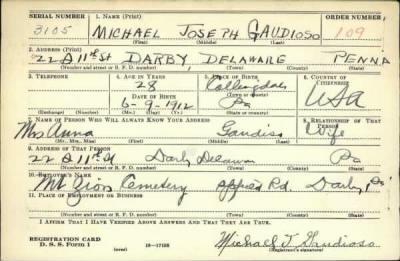 SERIAL NUMBER 1. NAME (Print) ORDER NUMBER
3105 MICHAEL JOSEPH GAUDIOSO 109
(First) (Middle) (Last)
2. ADDRESS (Print)
22 11th ST DARBY, DELAWARE PENNA
(Number and street or R. F. D. number) (Town) (County) (State)
3. TELEPHONE 4. AGE IN YEARS 5. PLACE OF BIRTH 6. COUNTRY OF CITIZENSHIP
28 Collingdale
DATE OF BIRTH USA
6-9-1912 Pa
(Exchange) (Number) (Mo.) (Day) (Yr.) (State or country)
7. NAME OF PERSON WHO WILL ALWAYS KNOW YOUR ADDRESS 8. RELATIONSHIP OF THAT PERSON
Mrs Anna Gaudioso Wife
(Mr., Mrs., Miss) (First) (Middle) (Last)
9. ADDRESS OF THAT PERSON
22 11th St Darby Delaware Pa
(Number and street or R. F. D. number) (Town) (County) (State)
10. EMPLOYER'S NAME
Mt Zion Cemetery Rd. Darby, Pa
11. PLACE OF EMPLOYMENT OR BUSINESS
(Number and street or R. F. D. number) (Town) (County) (State)
I AFFIRM THAT I HAVE VERIFIED ABOVE ANSWERS AND THAT THEY ARE TRUE.
REGISTRATION CARD
D. S. S. Form 1 (over) 16-17105 Michael J. Gaudioso
(Registrant's signature)